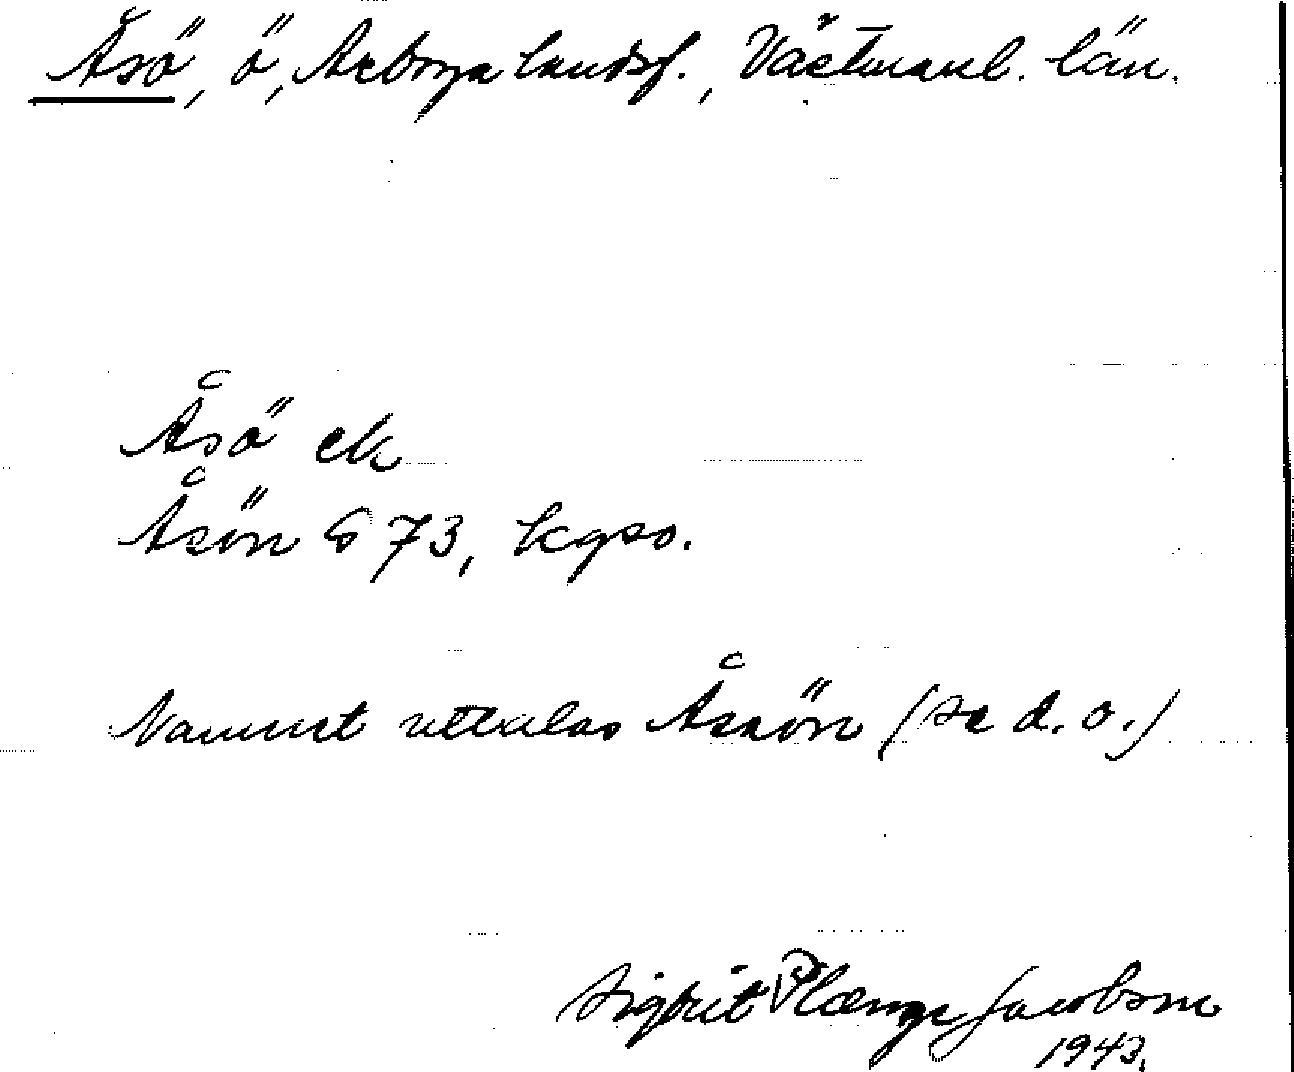 Åsö, ö, Arboga landsf., Västmanl. län.
Åsö ek
Åsön S 73, kgso.
Namnet uttalas Åsaön (se d. o.)
Sigbrit Plænge Jacobson
1943.